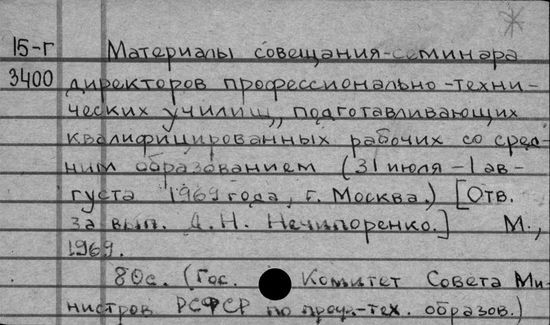 15-г Материалы совещания-семинара
3400 директоров профессионально-техни-
ческих училищ, подготавливающих
квалифицированных рабочих со сред-
ним образованием (31 июля - 1 ав-
густа 1969 года, г. Москва.) [Отв.
за вып. А. Н. Нечипоренко.] М.,
1969.
80с. (Гос. Комитет Совета Ми-
нистров РСФСР по проф.-тех. образов.)